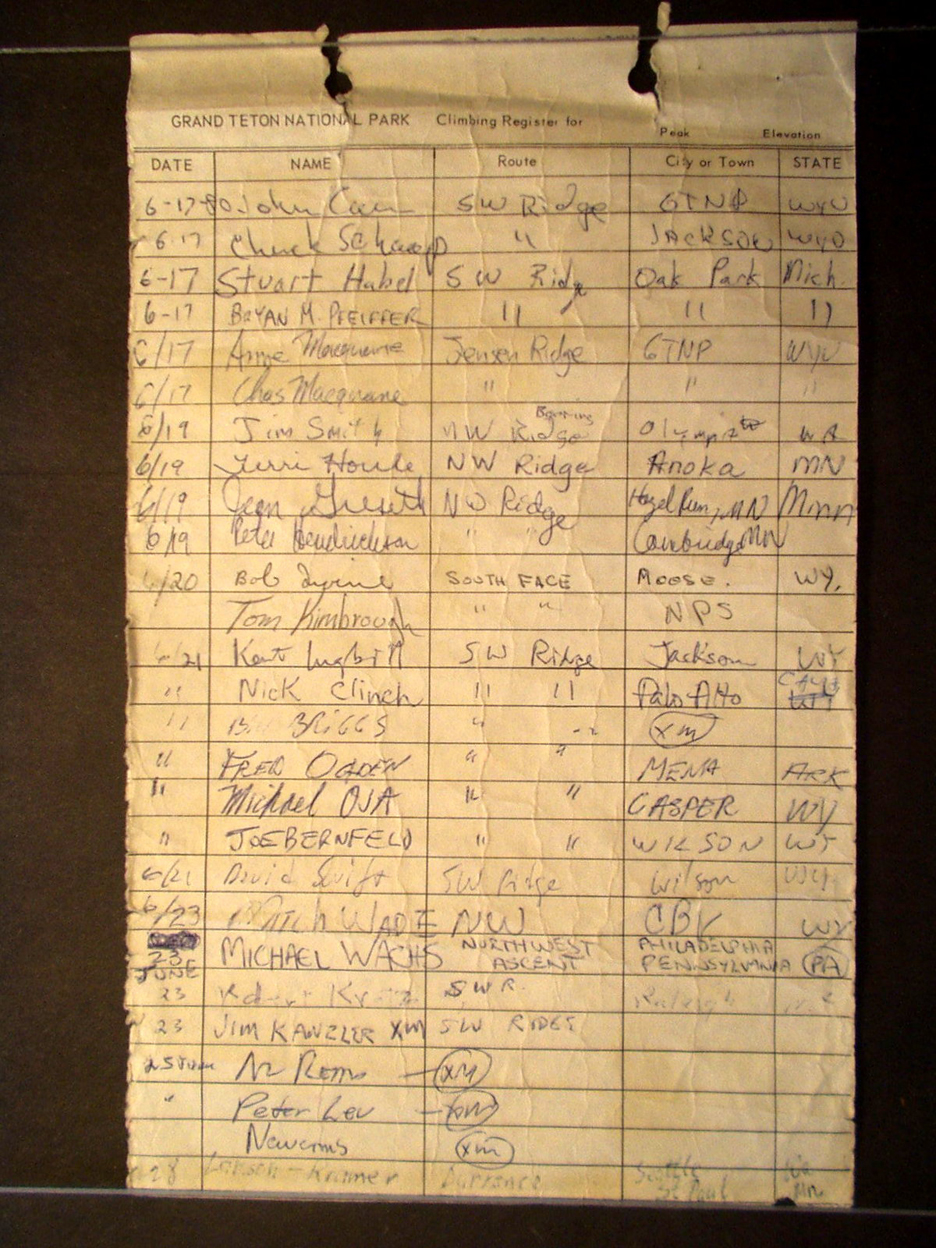 GRAND TETON NATIONAL PARK Climbing Register for
Peak Elevation
DATE NAME Route City or Town STATE
6-17-80 John SW Ridge GTNP WYO
6-17 Chuck " JACKSON WYO
6-17 Stuart Habel SW Ridge Oak Park Mich.
6-17 BRYAN M. PFEIFFER " " "
6/17 Anne Macquarie Jensen Ridge GTNP WYO
6/17 Chas Macquarie " " "
6/19 Jim Smith NW Ridge Olympia WA
6/19 Terri Houle NW Ridge Anoka MN
6/19 Jean NW Ridge Hazel Run, MN Minn
6/19 Peter Hendrickson " " Cambridge MN
6/20 Bob Irvine SOUTH FACE MOOSE. WY.
Tom Kimbrough " " NPS
6/21 Kent SW Ridge Jackson WY
" Nick Clinch " " Palo Alto Calif
" BRIGGS " " XM
" FRED OGDEN " " MENA ARK
" Michael OJA " " CASPER WY
" JOE BERNFELD " " WILSON WY
6/21 David Swift SW Ridge Wilson
6/23 Mitch WADE NW WY
23 JUNE MICHAEL WACHS NORTHWEST ASCENT PHILADELPHIA PENNSYLVANIA PA
23 Robert SWR. Raleigh
23 JIM KANZLER XM SW RIDGE
25 June XM
" Peter Lev XM
Newcomb XM
28 Larson - Kramer Durrance Seattle St Paul Mn